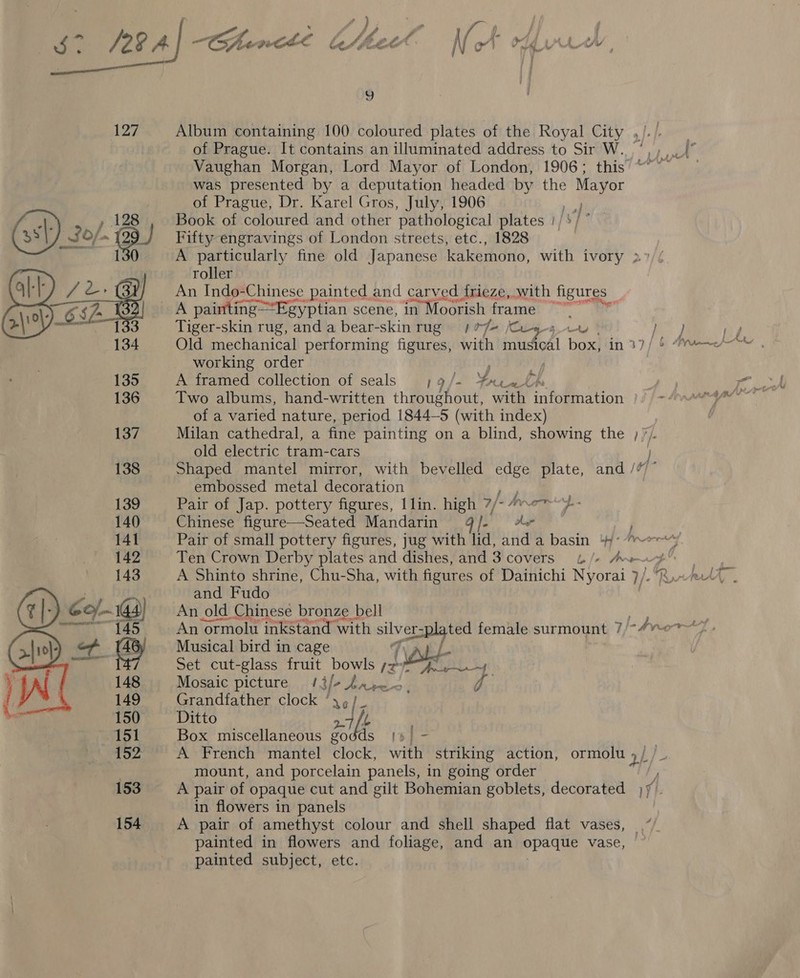 9
127 Album containing 100 coloured plates of the Royal City
of Prague. It contains an illuminated address to Sir W.
Vaughan Morgan, Lord Mayor of London, 1906; this
was presented by a deputation headed by the Mayor
of Prague, Dr. Karel Gros, July, 1906
128 Book of coloured and other pathological plates
30/- 129 Fifty engravings of London streets, etc., 1828
130 A particularly fine old Japanese kakemono, with ivory
roller
12- 131 An Indo-Chinese painted and carved frieze, with figures
132 A painting—Egyptian scene, in Moorish frame
133 Tiger-skin rug, and a bear-skin rug
134 Old mechanical performing figures, with musical box, in
working order
135 A framed collection of seals 19/-
136 Two albums, hand-written throughout, with information
of a varied nature, period 1844-5 (with index)
137 Milan cathedral, a fine painting on a blind, showing the
old electric tram-cars
138 Shaped mantel mirror, with bevelled edge plate, and
embossed metal decoration
139 Pair of Jap. pottery figures, 11in. high 7/-
140 Chinese figure—Seated Mandarin 9/-
141 Pair of small pottery figures, jug with lid, and a basin
142 Ten Crown Derby plates and dishes, and 3 covers
143 A Shinto shrine, Chu-Sha, with figures of Dainichi Nyorai
and Fudo
60/- 144 An old Chinese bronze bell
145 An ormolu inkstand with silver-plated female surmount 7/-
146 Musical bird in cage
147 Set cut-glass fruit bowls
148 Mosaic picture
149 Grandfather clock
150 Ditto
151 Box miscellaneous goods
152 A French mantel clock, with striking action, ormolu
mount, and porcelain panels, in going order
153 A pair of opaque cut and gilt Bohemian goblets, decorated
in flowers in panels
154 A pair of amethyst colour and shell shaped flat vases,
painted in flowers and foliage, and an opaque vase,
painted subject, etc.